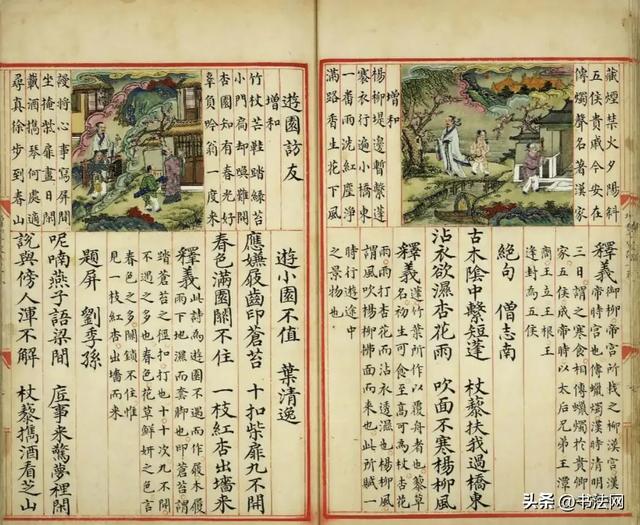 藏煙禁火夕陽斜
五侯貴戚今安在
傳燭聲名著漢家
增和
楊柳堤邊暫繫篷
褰衣行遍小橋東
一番雨洗紅塵淨
滿路香生花下風
釋義
御柳御帝所栽之柳漢宮漢
帝時宮也傳蠟燭漢時清明
三日謂之寒食相傳蠟燭於貴卿
家五侯成帝時以太后兄弟王潭
商王立王根王
逢封為五侯
絕句 僧志南
古木陰中繫短蓬 杖藜扶我過橋東
沾衣欲濕杏花雨 吹面不寒楊柳風
釋義
蓬竹葉所作以覆舟者也藜草
名初生可食至高可為杖杏花
雨雨打杏花而沾衣透濕也楊柳風
謂風吹楊柳拂面而來也此所賦一
時行遊途中
之景物也
遊園訪友
增和
竹杖芒鞋踏綠苔
小門高却嘆難開
杏園知有春光好
辜負吟翁一度來
謾將心事寫屏間
坐掩柴扉盡日閒
載酒攜琴何處適
尋真徐步到春山
遊小園不值 葉清逸
應嫌屐齒印蒼苔 十扣柴扉九不開
春色滿園關不住 一枝紅杏出墻來
釋義
此詩為遊園不遇而作屐木履
雨下地濕而套脚也印蒼苔謂
踏蒼苔之徑扣打也十十次九言
不遇之多也春色花草鮮妍之色言
春色之多關鎖不住惟
見一枝紅杏出墻而來
題屏 劉季孫
呢喃燕子語梁間 底事來驚夢裡閒
說與傍人渾不解 杖藜攜酒看芝山
头条 @书法网